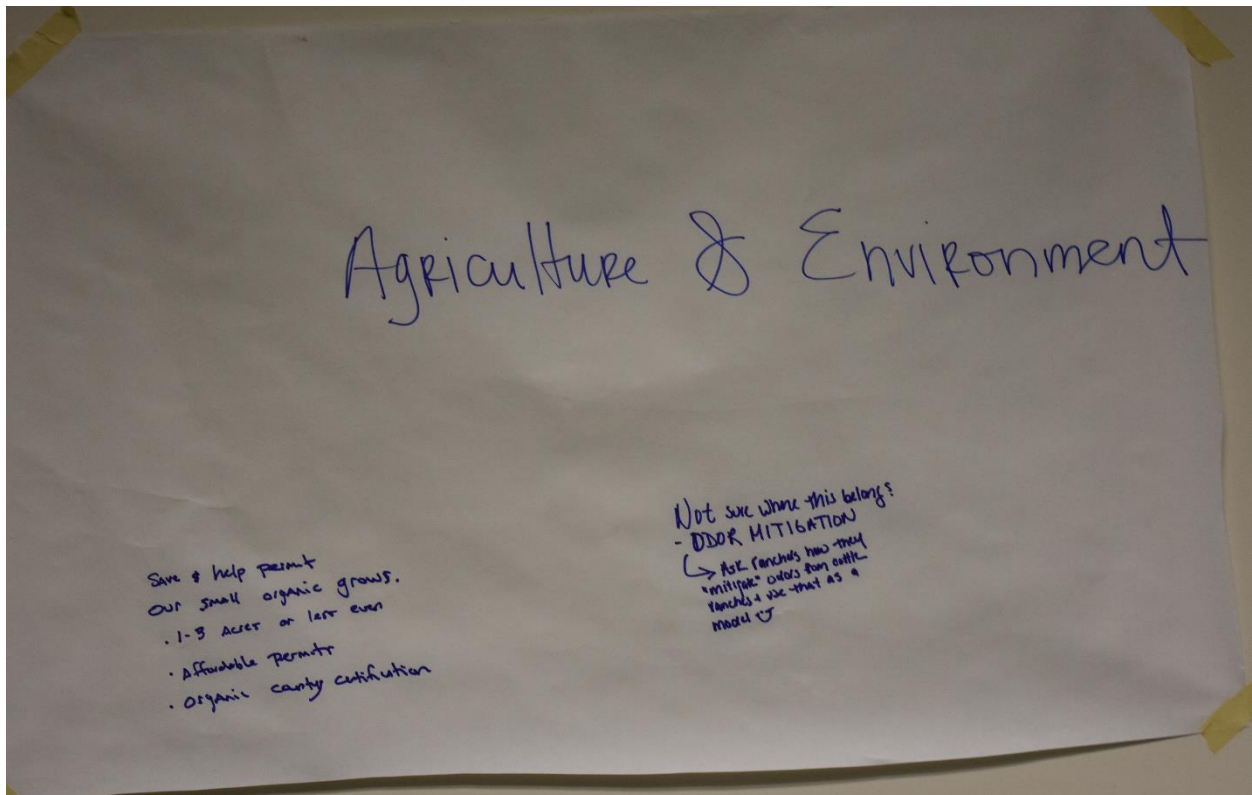 Agriculture & Environment
Save & help permit
our small organic grows.
. 1-3 Acres or less even
. Affordable permits
. organic county certification
Not sure where this belongs?
- ODOR MITIGATION
↳ Ask ranchers how they
"mitigate" odors from cattle
ranches + use that as a
model